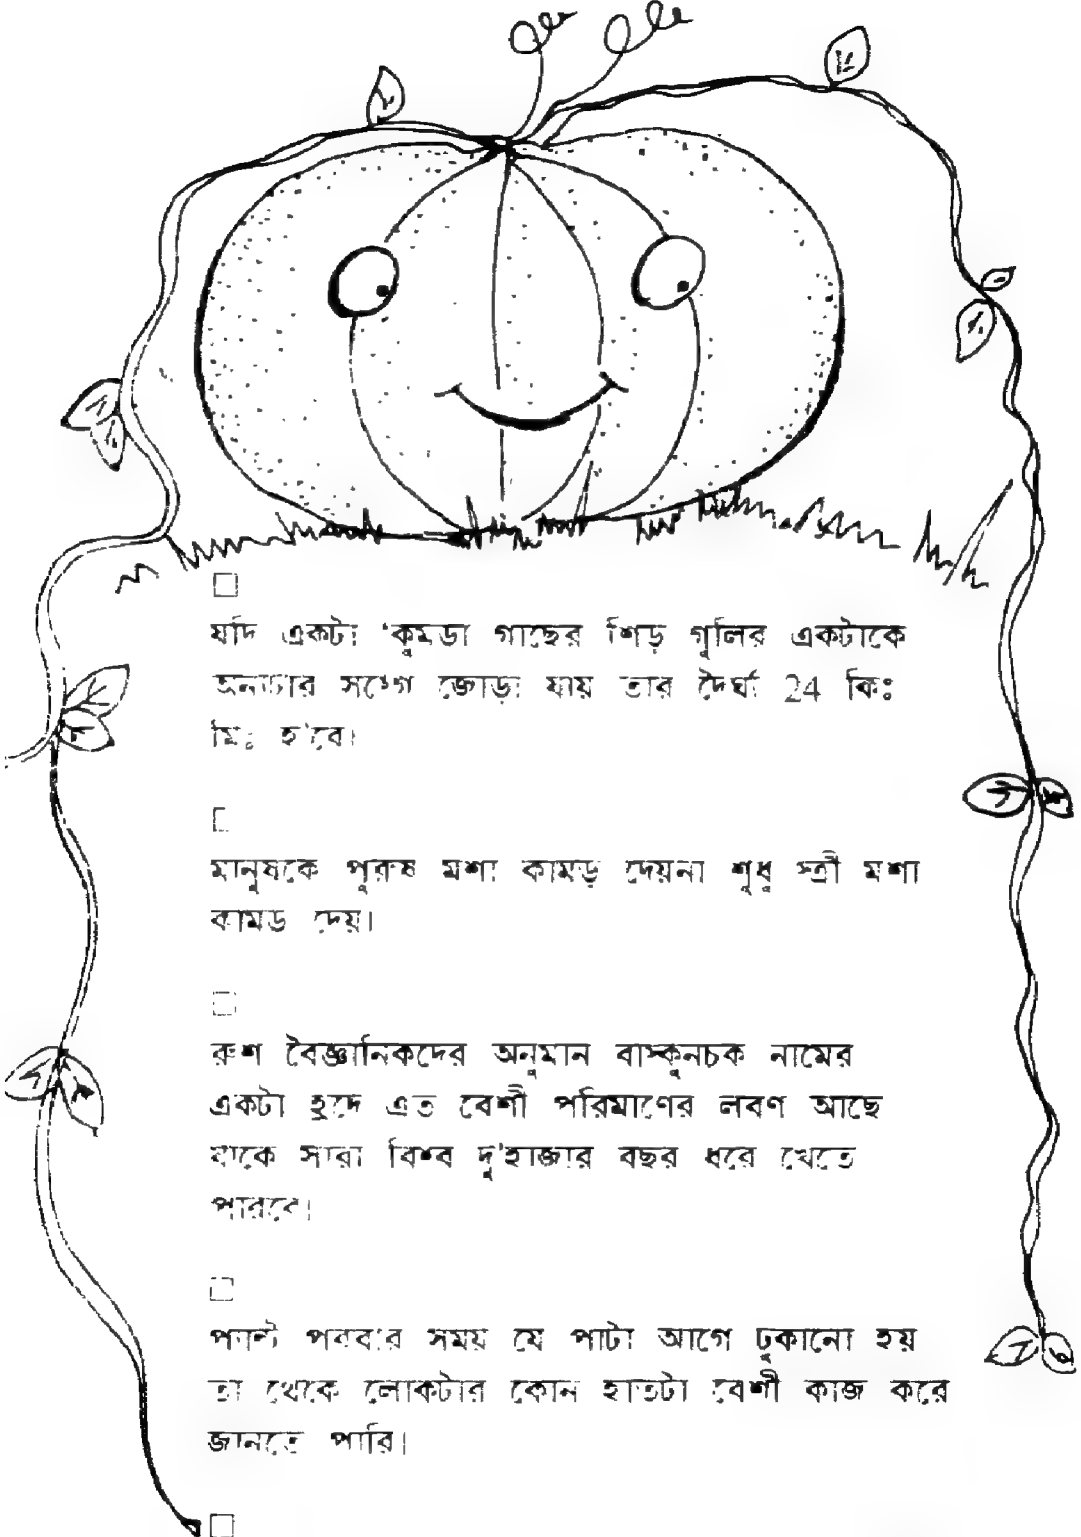 যদি একটা 'কুমড়া গাছের শিড় গুলির একটাকে
অন্যটার সঙ্গে জোড়া যায় তার দৈর্ঘ্য 24 কিঃ
মিঃ হ'বে।
মানুষকে পুরুষ মশা কামড় দেয়না শুধু স্ত্রী মশা
কামড় দেয়।
রুশ বৈজ্ঞানিকদের অনুমান বাস্কুনচক নামের
একটা হ্রদে এত বেশী পরিমাণের লবণ আছে
যাকে সারা বিশ্ব দু'হাজার বছর ধরে খেতে
পারবে।
প্যান্ট পরবার সময় যে পাটা আগে ঢুকানো হয়
তা থেকে লোকটার কোন হাতটা বেশী কাজ করে
জানতে পারি।